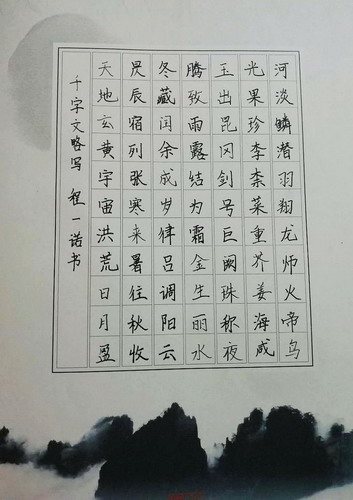 千字文略写 程一诺书
天地玄黄宇宙洪荒日月盈
昃辰宿列张寒来暑往秋收
冬藏闰余成岁律吕调阳云
腾致雨露结为霜金生丽水
玉出昆冈剑号巨阙珠称夜
光果珍李柰菜重芥姜海咸
河淡鳞潜羽翔龙师火帝鸟